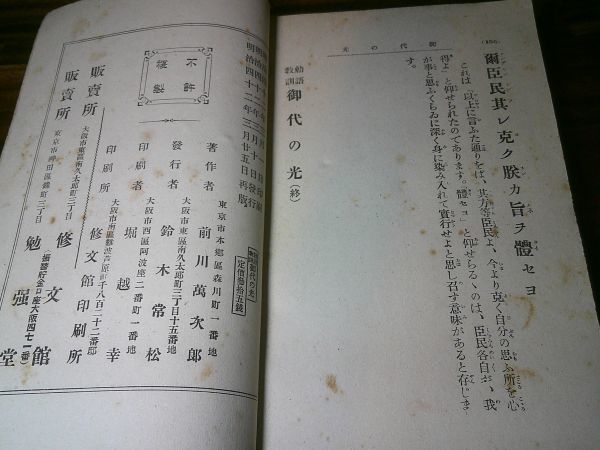 (156)
御代の光
爾臣民其レ克ク朕カ旨ヲ體セヨ
これは「以上に言ふた通りをば、其方等臣民よ、今より克く自分の思ふ所を心
得よ」と仰せられたのであります。「體セヨ」と仰せらるゝのは、臣民各自が、我
が事と思ふくらゐに深く身に染み入れて實行せよと思し召す意味があると存じま
す。
勅語
教訓 御代の光(終)
不許
複製
御代の光
定價參拾五錢
明治四十二年三月廿五日再版
東京市本鄕區森川町一番地
著作者 前川萬次郎
大阪市東區南久太郎町三丁目十五番地
發行者 鈴木常松
大阪市西區阿波座二番町一番地
印刷者 堀越幸
大阪市南區難波芦原町千八百二十二番邸
印刷所 修文館印刷所
大阪市東區南久太郎町三丁目
販賣所 修文館
振替貯金口座大阪四七二番
東京市神田區錦町三丁目
販賣所 勉强堂